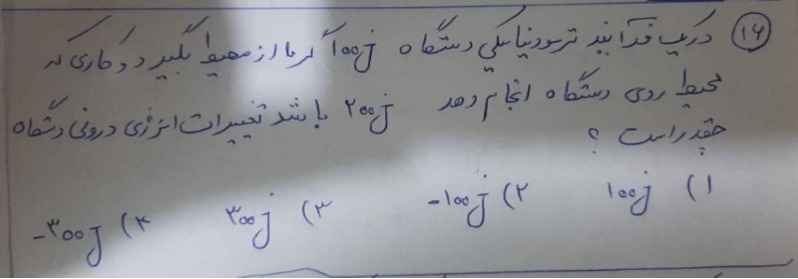 ۱۶) در یک فرآیند ترمودینامیکی دستگاه ۱۰۰j گرما از محیط بگیرد و کاری که
محیط روی دستگاه انجام دهد ۲۰۰j باشد تغییرات انرژی درونی دستگاه
چقدر است ؟
۱) ۱۰۰j ۲) -۱۰۰j ۳) ۳۰۰j ۴) -۳۰۰j